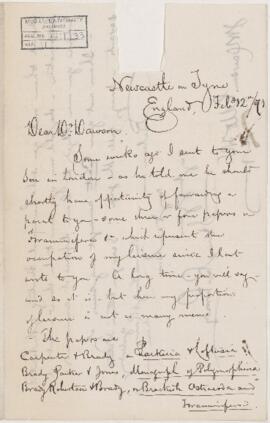 Newcastle on Tyne
England, Feb 12
Dear Dr Dawson
Some weeks ago I sent to your
Son in London - as he told me he should
shortly have opportunity of forwarding a
parcel to you - some three or four papers on
Foraminifera &c, which represent the
occupation of my leisure since I last
wrote to you - A long time - you will say -
and so it is - but then my proportion
of leisure is not so many
The papers are
Carpenter & Brady on Parkeria & Loftusia
Brady Parker & Jones, Monograph of Polymorphina
Brady, Robertson & Brady, on Brackish Ostracoda and
Foraminifera